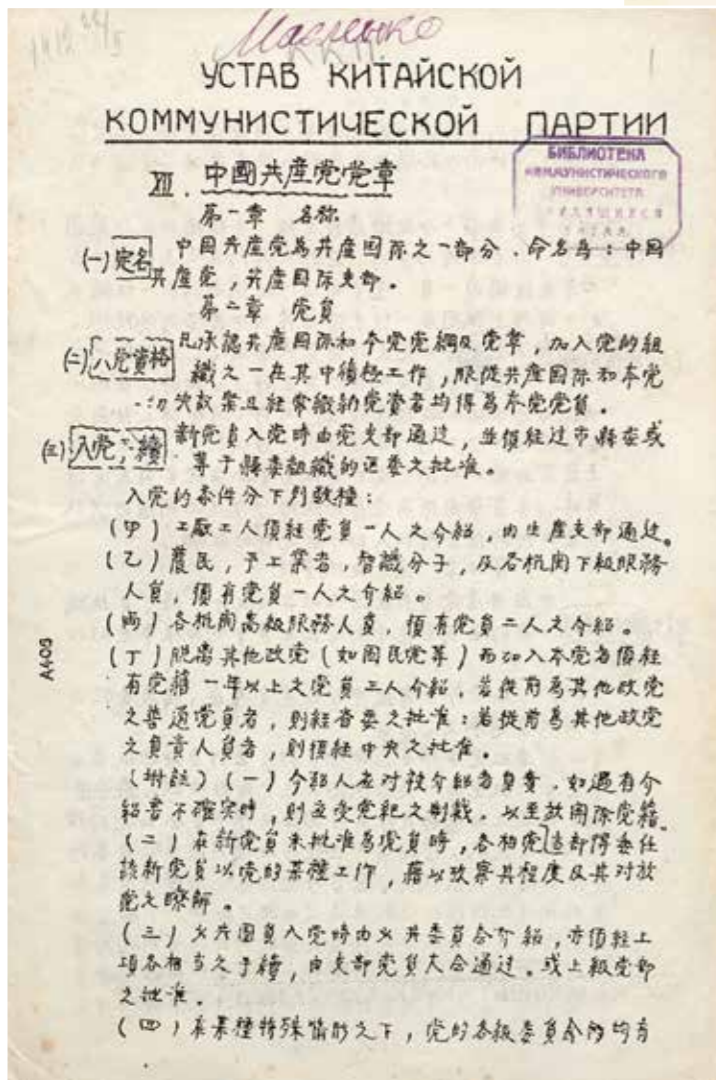 УСТАВ КИТАЙСКОЙ
КОММУНИСТИЧЕСКОЙ ПАРТИИ
БИБЛИОТЕКА
КОММУНИСТИЧЕСКОГО
УНИВЕРСИТЕТА
XII. 中國共産党党章
第一章 名称
(一) 定名 中国共産党為共産国际之一部分．命名為：中國
共産党，共産国际支部。
第二章 党員
(二) 入党資格 凡承認共産国际和本党党綱及党章，加入党的組
織之一在其中積極工作，服從共産国际和本党
一切决議案且經常繳納党費者均得為本党党員．
(三) 入党手續 新党員入党時由党支部通过，並須經过市縣委或
等于縣委組織的区委之批准。
入党的条件分下列数種：
(甲) 工廠工人須經党員一人之介紹，由生産支部通过。
(乙) 農民，手工業者，智識分子，及各机関下級服務
人員，須有党員一人之介紹。
(丙) 各机関高級服務人員，須有党員二人之介紹。
(丁) 脱离其他政党(如国民党等)而加入本党者須經
有党籍一年以上之党員三人介紹，若從前為其他政党
之普通党員者，則經省委之批准：若從前為其他政党
之負責人員者，則須經中央之批准。
(附註)(一) 介紹人应对被介紹者負責．如遇有介
紹書不確实時，則应受党紀之制裁．以至於開除党籍
(二) 在新党員未批准為党員時，各相党部得委任
該新党員以党的某種工作，藉以攷察其程度及其对於
党之瞭解。
(三) 少共団員入党時由少共委員会介紹，亦須經上
項各相当之手續，由支部党員大会通过．或上級党部
之批准．
(四) 在某種特殊情形之下，党的各級委員会均有
A405